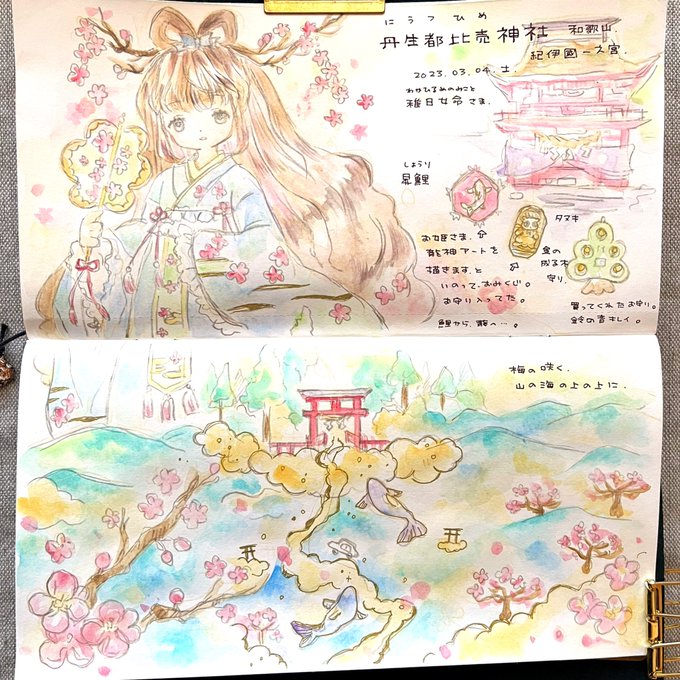 にうつひめ
丹生都比売神社 和歌山.
紀伊國一之宮.
2023.03.04.土.
わかひるめのみこと
稚日女命さま.
しょうり
昇鯉
タマキ
お姫さま.
龍神アートを
描きます。と
いのって、おみくじ。
お守り入ってた。
鯉から、龍へ…。
金の
成る木
守り.
買ってくれたお守り。
鈴の音キレイ。
梅の咲く.
山の海の上の上に.